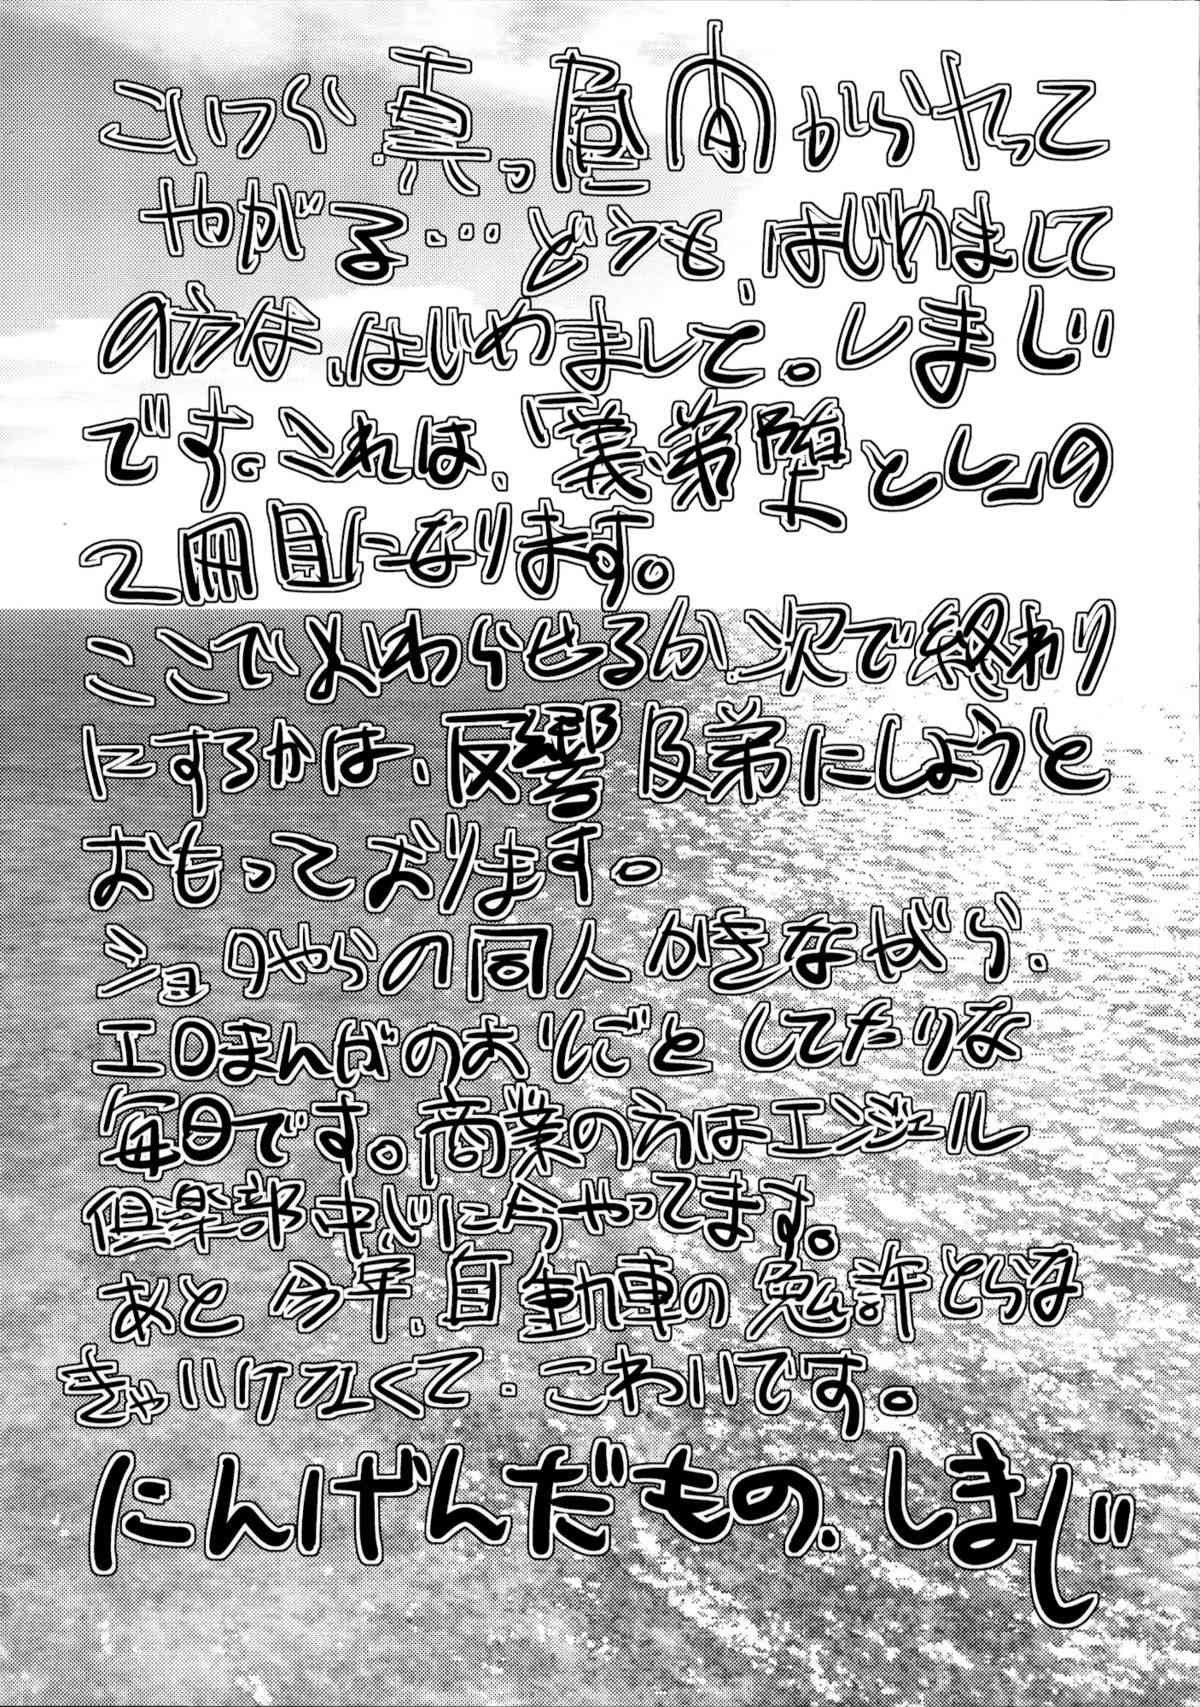 こいつら真っ昼間からヤって
やがる…どうも、はじめまして
の方は、はじめまして。しまじ
です。これは、「義弟堕とし」の
2冊目になります。
ここでよわらせるか次で終わり
にするかは、反響及弟にしようと
おもっております。
ショタやらの同人かきながら、
エロまんがのおしごとしてたりな
毎日です。商業の方はエンジェル
倶楽部中心に今やってます。
あと今年、自動車の免許とらな
きゃいけなくて、こわいです。
にんげんだもの、しまじ